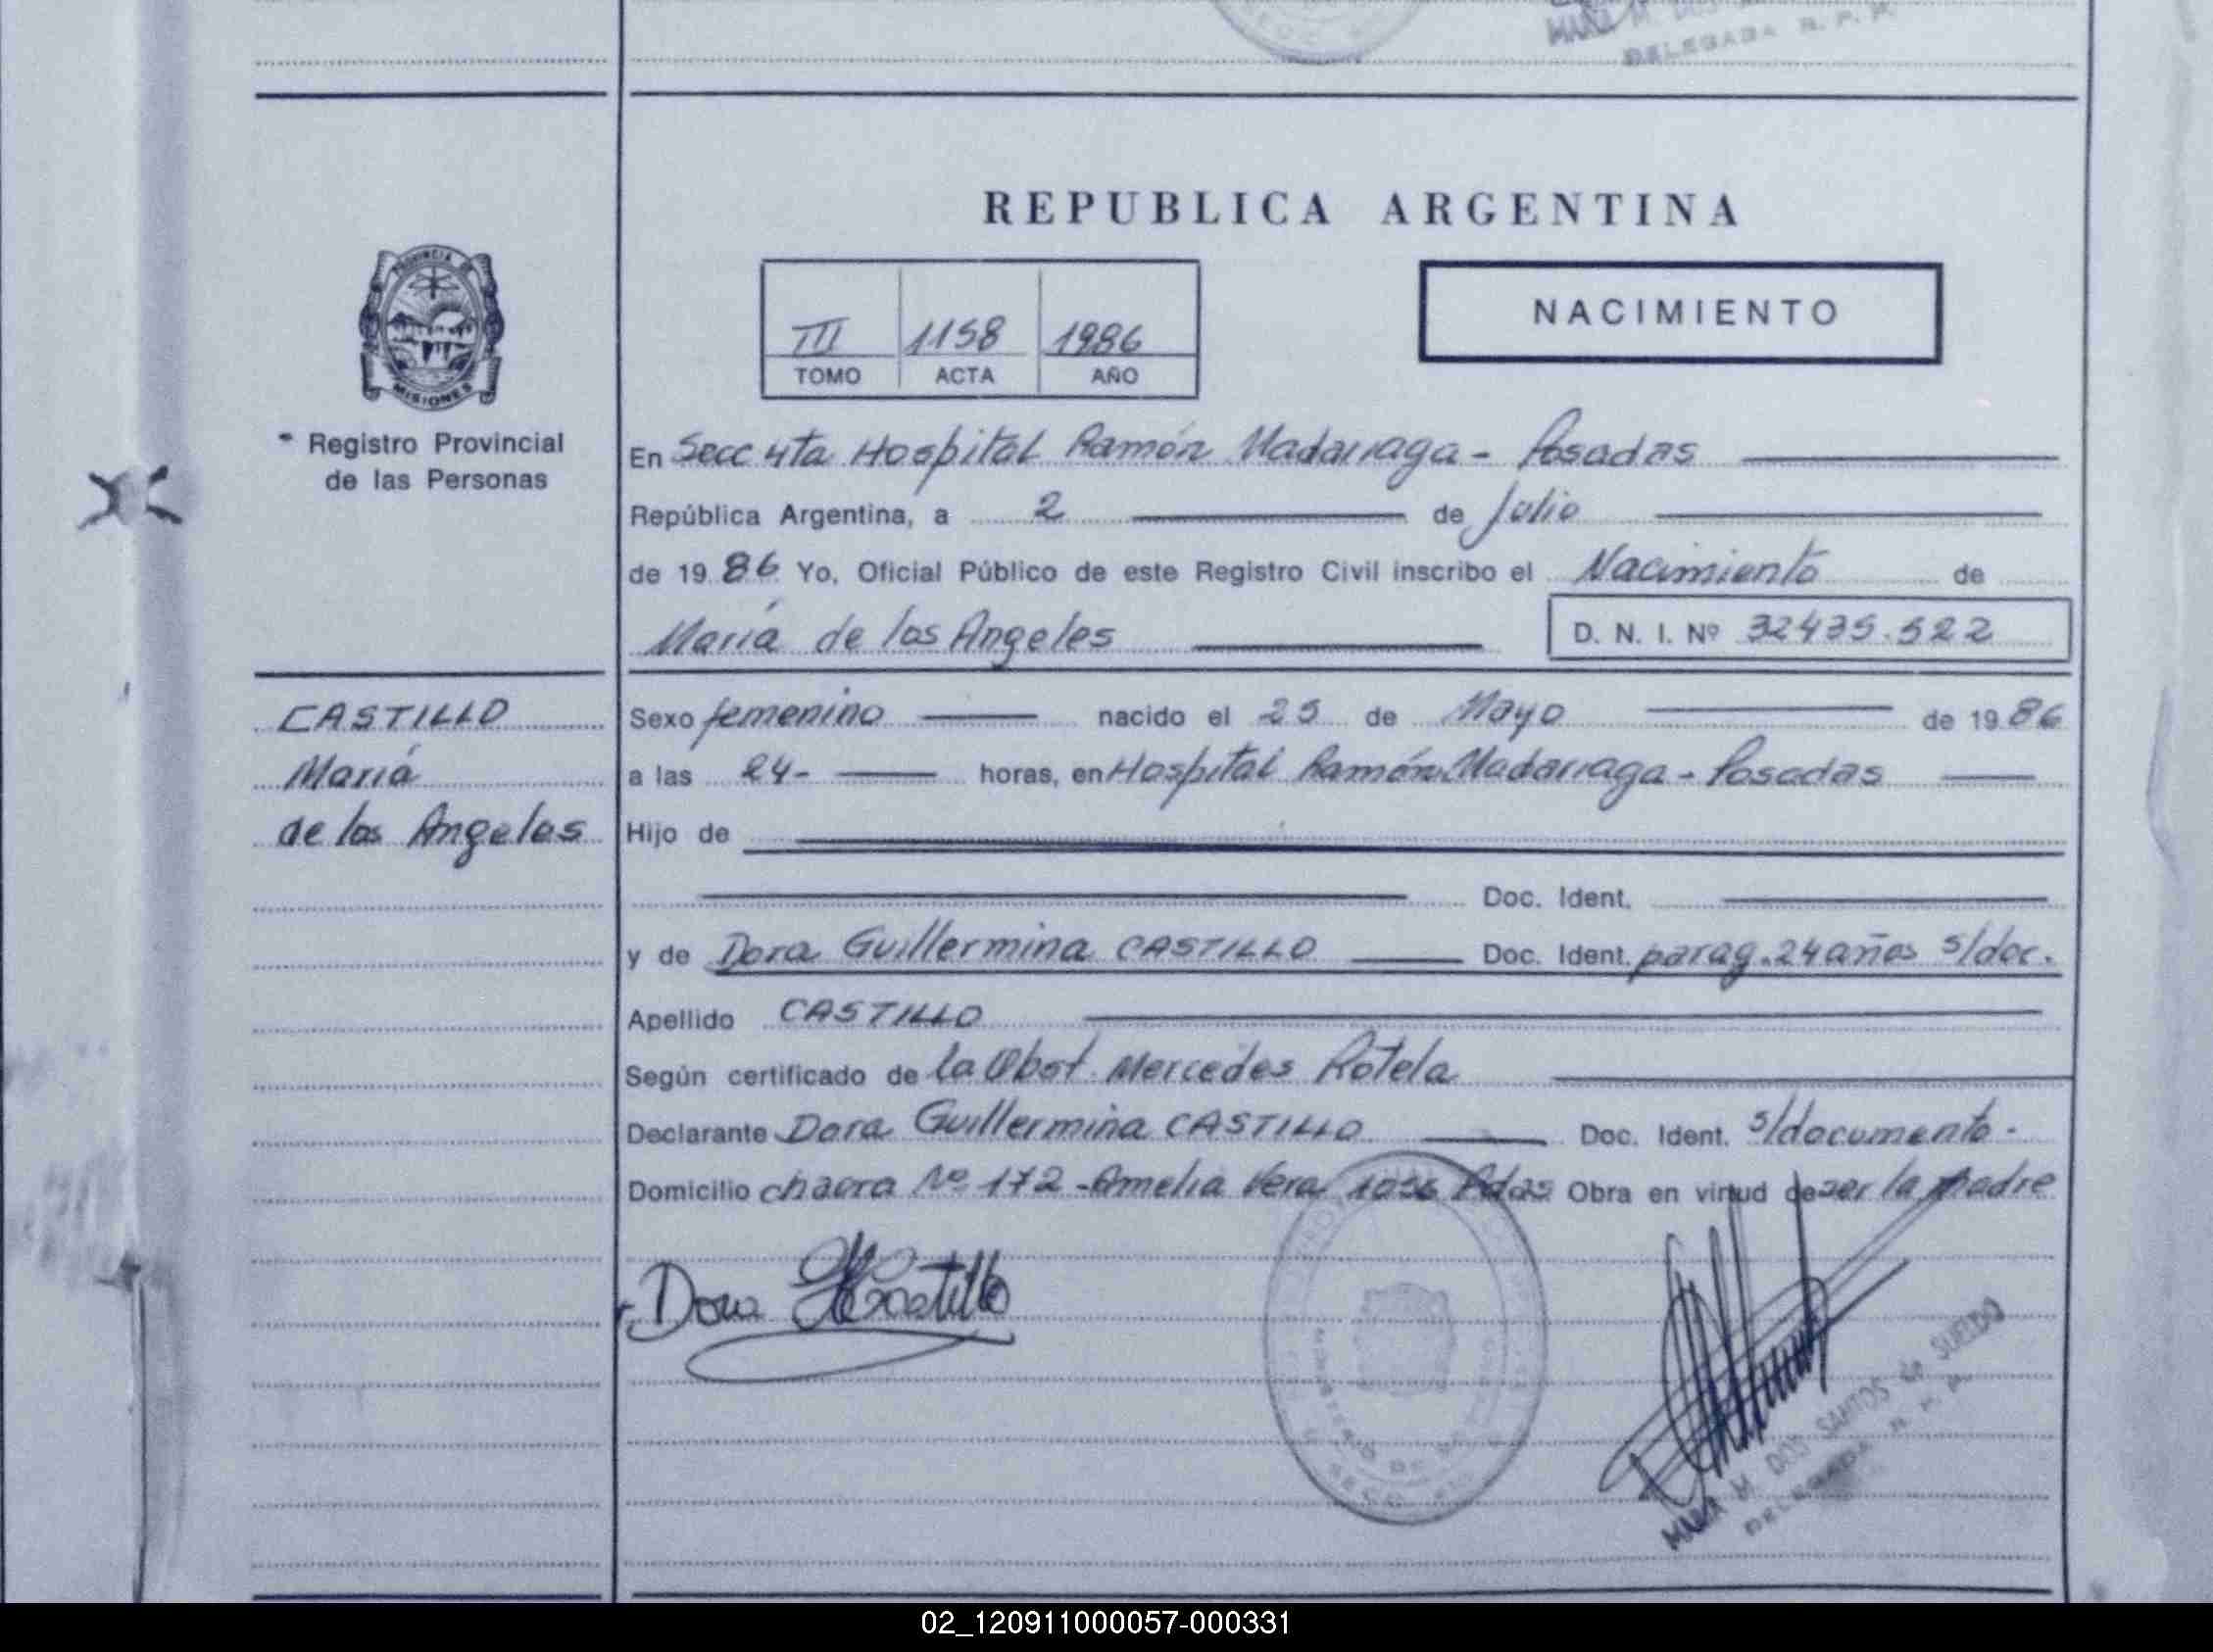 MARIA M. DOS
DELEGADA R. P. P.
REPUBLICA ARGENTINA
PROVINCIA DE
MISIONES
Registro Provincial
de las Personas
III 1158 1986
TOMO ACTA AÑO
NACIMIENTO
En Secc 4ta Hospital Ramón Madariaga - Posadas
República Argentina, a 2 de Julio
de 1986 Yo, Oficial Público de este Registro Civil inscribo el Nacimiento de
María de los Angeles D. N. I. Nº 32435.522
CASTILLO
María
de los Angeles
Sexo femenino nacido el 25 de Mayo de 1986
a las 24- horas, en Hospital Ramón Madariaga - Posadas
Hijo de
Doc. Ident.
y de Dora Guillermina CASTILLO Doc. Ident. parag. 24 años s/doc.
Apellido CASTILLO
Según certificado de la Obst. Mercedes Rotela
Declarante Dora Guillermina CASTILLO Doc. Ident. s/documento.
Domicilio chacra Nº 172 - Amelia Vera Pdas Obra en virtud de ser la madre
Dora G Castillo
MINISTERIO DE
MARIA M. DOS SANTOS de SUELDO
DELEGADA R. P. P.
02_120911000057-000331